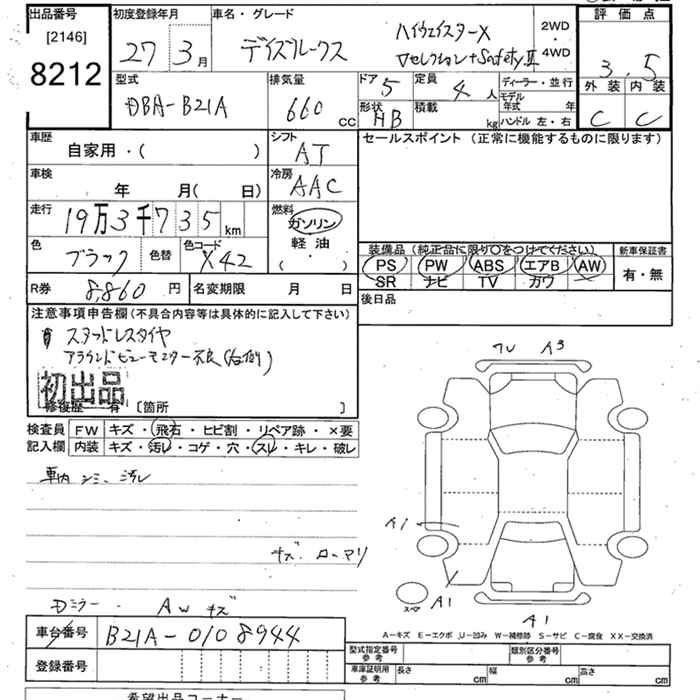 出品番号
[2146]
8212
初度登録年月
27 3月
車名・グレード
デイズルークス
ハイウェイスターX
Vセレクション+SafetyⅡ
2WD
・
4WD
評価点
3.5
外装 内装
C C
型式
DBA-B21A
排気量
660 CC
ドア 5
定員 4人
形状 HB
積載 kg
ディーラー・並行
モデル年式 年
ハンドル 左・右
車歴
自家用・( )
シフト
AT
セールスポイント (正常に機能するものに限ります)
車検
年 月( 日)
冷房
AAC
走行
19万3千735km
燃料
ガソリン
軽油
・
( )
色
ブラック
色替
色コード
X42
装備品(純正品に限り○をつけてください)
PS PW ABS エアB AW
SR ナビ TV カワ
新車保証書
有・無
R券 8,860円
名変期限 月 日
後日品
注意事項申告欄(不具合内容等は具体的に記入して下さい)
スタッドレスタイヤ
アラウンドビューモニター不良(右側)
初出品
修復歴 有 [箇所 ]
検査員
記入欄
FW キズ・飛石・ヒビ割・リペア跡・×要
内装 キズ・汚レ・コゲ・穴・スレ・キレ・破レ
車内シミ、汚レ
A3
A1
A1
A1
スペア
AWキズ
車台番号 B21A-0108944
登録番号
A-キズ E-エクボ U-凹み W-補修跡 S-サビ C-腐食 XX-交換済
型式指定番号
参考
類別区分番号
参考
車庫証明用
参考
長さ cm
幅 cm
高さ cm
希望出品コーナー